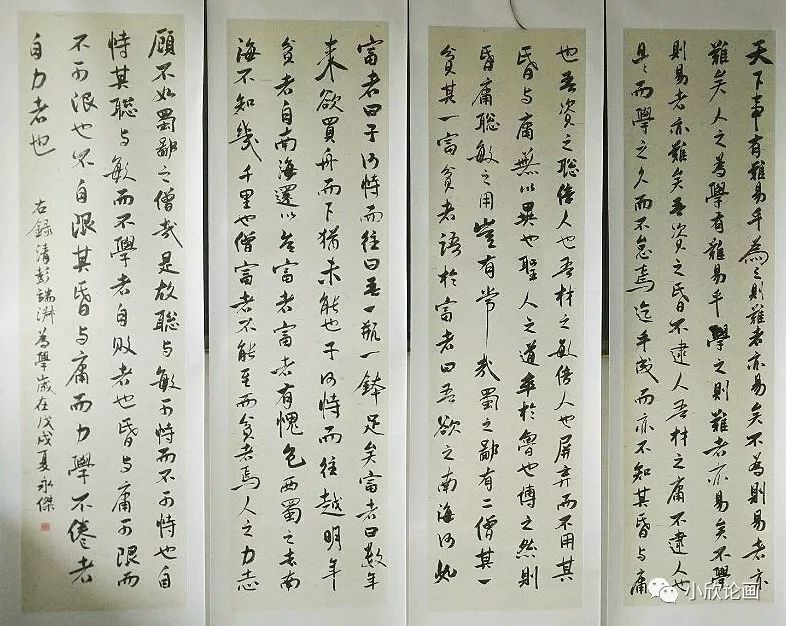 天下事有難易乎為之則難者亦易矣不為則易者亦
難矣人之為學有難易乎學之則難者亦易矣不學
則易者亦難矣吾資之昏不逮人吾材之庸不逮人也
旦旦而學之久而不怠焉迄乎成而亦不知其昏与庸
也吾資之聰倍人也吾材之敏倍人也屏弃而不用其
昏与庸無以異也聖人之道卒於魯也傳之然則
昏庸聰敏之用豈有常哉蜀之鄙有二僧其一
貧其一富貧者語於富者曰吾欲之南海何如
富者曰子何恃而往曰吾一瓶一鉢足矣富者曰數年
來欲買舟而下猶未能也子何恃而往越明年
貧者自南海還以告富者富者有愧色西蜀之去南
海不知幾千里也僧富者不能至而貧者焉人之力志
顧不如蜀鄙之僧哉是故聰与敏可恃而不可恃也自
恃其聰与敏而不學者自敗者也昏与庸可限而
不可限也不自限其昏与庸而力學不倦者
自力者也
右錄清彭端淑為學歲在戊戌夏永傑
小欣论画